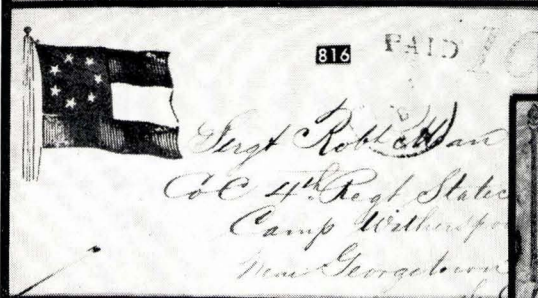 816
PAID 10
Sergt Robt
Co C 4th Regt State
Camp Witherspo
Near Georgetown